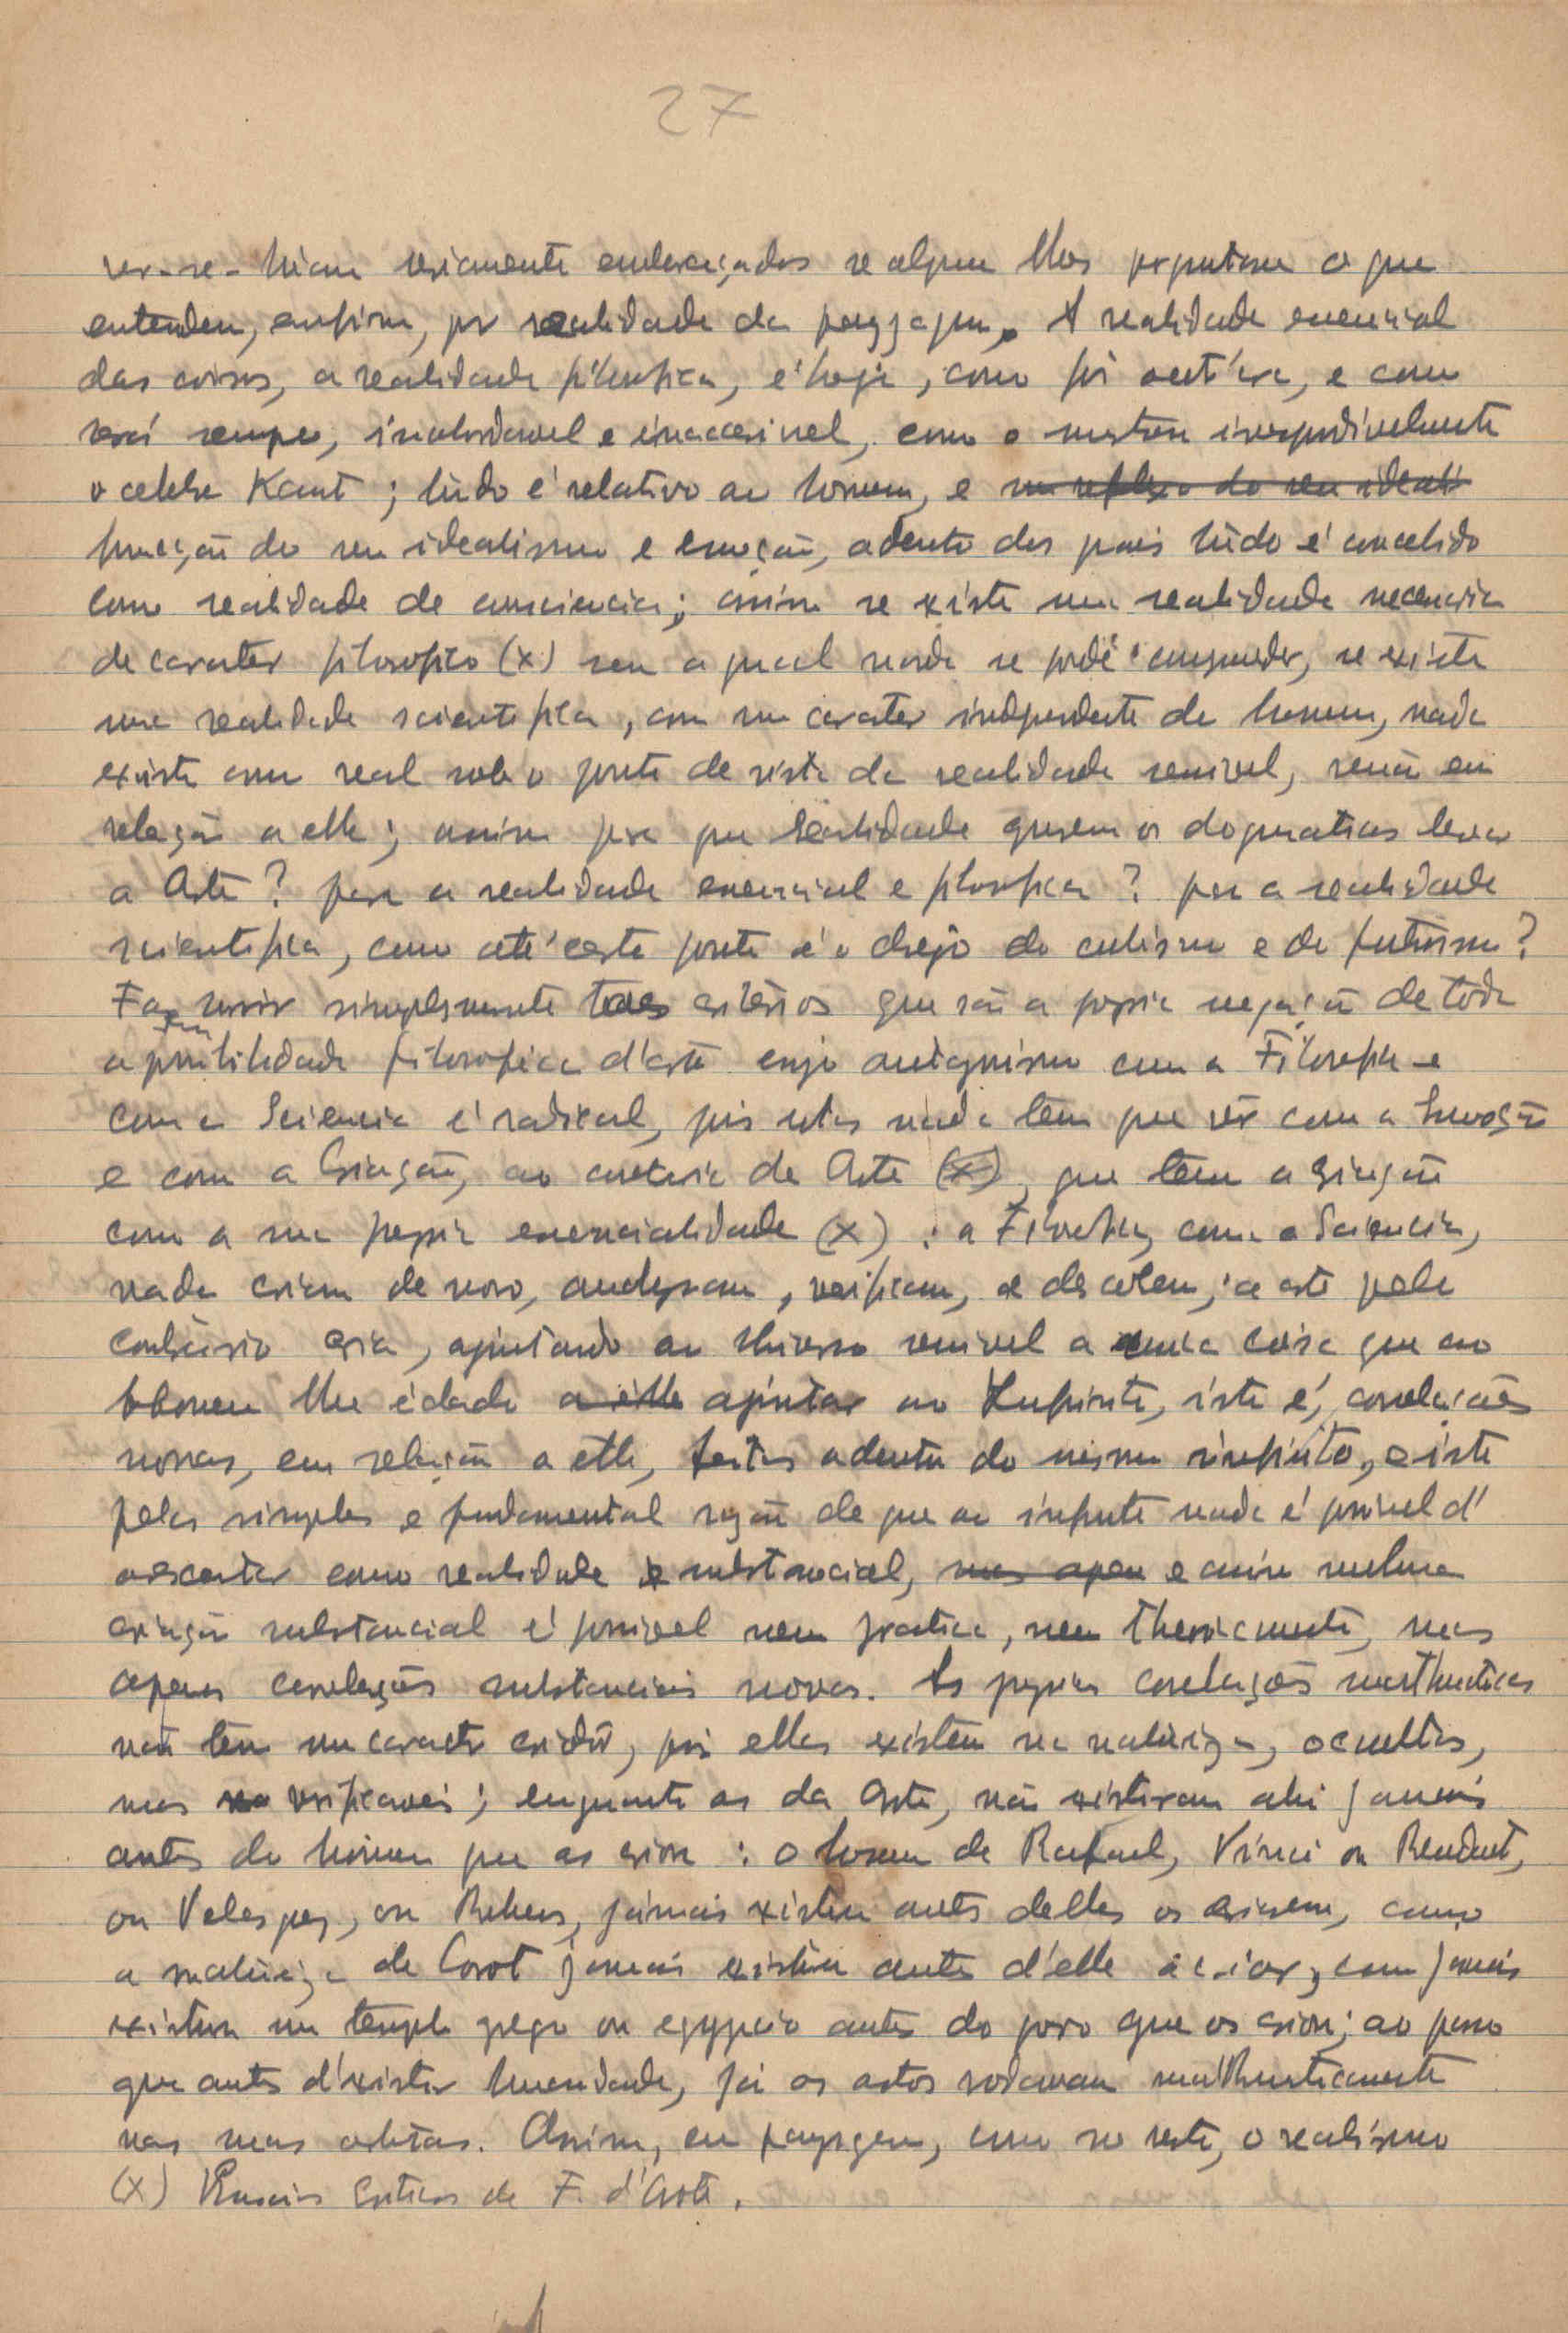 27
ver-se-hiam seriamente embaraçados se alguem lhes perguntasse o que
entendem, enfim, por realidade da paysagem. A realidade essencial
das coisas, a realidade filosofica, é hoje, como foi out'ra, e como
será sempre, inabordavel e inaccessivel, como o mostrou
o celebre Kant; tùdo é relativo ao homem, e um reflexo do seu ideali
funcção do seu idealismo e emoção, adentro dos quais tùdo é concebido
como realidade de consciencia; assim se existe uma realidade necessaria
de carater filosofico (x) sem a qual nada se póde comprender, se existe
uma realidade scientifica, com um carater independente do homem, nada
existe como real sob o ponto de vista da realidade sensivel, senão em
relação a elle; assim para que realidade querem os dogmaticos levar
a Arte? para a realidade essencial e filosofica? para a realidade
scientifica, como até certo ponto é o desejo do cubismo e do futurismo?
Fazem sorrir simplesmente taes critérios que são a propria negação de toda
a possibilidade filosofica d'arte cujo antagonismo com a Filosofia e
com a Sciencia é radical, pois estas nada têm que vêr com a Emoção
e com a Criação, ao contrario da Arte (x), que tem a Criação
como a sua propria essencialidade (x) : a Filosofia, como a Sciencia,
nada criam de novo, analysam, verificam, e descobrem; a arte pelo
contrário cria, ajuntando ao Universo sensivel a unica coisa que ao
homem lhe é dado a elle ajuntar ao Infinito, isto é, correlações
novas, em relação a elle, feitas adentro do mesmo infinito, e isto
pela simples e fundamental razão de que ao infinito nada é possivel d'
acrescentar como realidade substancial, mas apen e assim nenhuma
criação substancial é possivel nem pratica, nem theoricamente, mas
apenas correlações substanciais novas. As proprias correlações mathematicas
não têm um caracter criador, pois ellas existem na natureza, occultas,
mas verificaveis; emquanto as da Arte, não existiram ahi jamais
antes do homem que as criou : o homem de Rafael, Vinci ou Rembrandt,
ou Velasquez, ou Rubens, jámais existiu antes delles os criarem, como
a natureza de Corot jamais existiu antes d'elle a criar, como jamais
existiu um templo grego ou egypcio antes do povo que os criou; ao passo
que antes d'existir humanidade, já os astros rodavam mathematicamente
nas suas orbitas. Assim, em paysagem, como no resto, o realismo
(x) Ensaios Criticos de F. d'Arte.